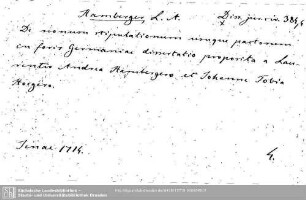 Ramberger, L. A. Diss. jur. civ. 38, 6
De nonnum stipulationum usuque pactorum
in foris Germaniae dissertatio proposita a Lau-
rentio Andrea Rambergero et Johanne Tobia
Jenae 1714. 4.
Sächsische Landesbibliothek -
Staats- und Universitätsbibliothek Dresden